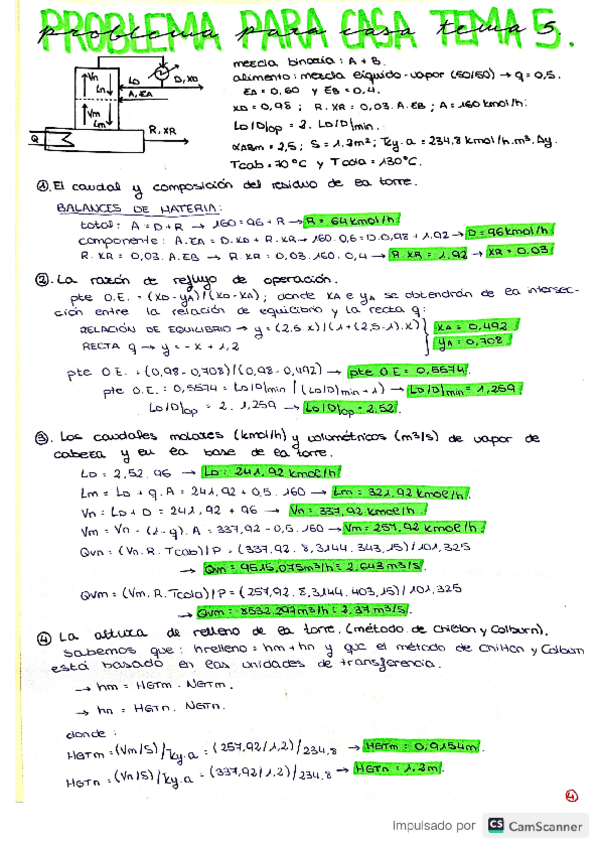 PROBLEMA PARA CASA TEMA 5.
problema para casa tema 5.
mezcla binaria: A + B.
alimento: mezcla líquido-vapor (50/50) → q = 0,5.
zA = 0,60 y zB = 0,4.
xD = 0,98 ; R.XR = 0,03.A.zB ; A = 160 kmol/h.
Lo/D|op = 2. Lo/D|min.
αABm = 2,5 ; S = 1,2m² ; Ky.a = 234,8 kmol/h.m³.Δy.
Tcab = 70°C y Tcola = 130°C.
Vn
Ln
LD
D, XD
A, zA
Vm
Lm
Q
R, XR
① El caudal y composición del residuo de la torre.
BALANCES DE MATERIA:
total: A = D + R → 160 = 96 + R → R = 64 kmol/h
componente: A.zA = D.XD + R.XR → 160.0,6 = D.0,98 + 1,92 → D = 96 kmol/h
R.XR = 0,03.A.zB → R.XR = 0,03.160.0,4 → R.XR = 1,92 → XR = 0,03
② La razón de reflujo de operación.
pte O.E. = (XD - yA)/(XD - XA) ; donde XA e yA se obtendrán de la intersec-
ción entre la relación de equilibrio y la recta q:
RELACIÓN DE EQUILIBRIO → y = (2,5 x)/(1+(2,5-1).x) } XA = 0,492
RECTA q → y = -x + 1,2 } yA = 0,708
pte O.E. = (0,98 - 0,708)/(0,98 - 0,492) → pte O.E = 0,5574.
pte O.E. = 0,5574 = Lo/D|min / (Lo/D|min + 1) → Lo/D|min = 1,259
Lo/D|op = 2. 1,259 → Lo/D|op = 2,52.
③ Los caudales molares (kmol/h) y volumétricos (m³/s) de vapor de
cabeza y en la base de la torre.
LD = 2,52.96 → LD = 241,92 kmol/h
Lm = LD + q.A = 241,92 + 0,5.160 → Lm = 321,92 kmol/h.
Vn = LD + D = 241,92 + 96 → Vn = 337,92 kmol/h.
Vm = Vn - (1-q).A = 337,92 - 0,5.160 → Vm = 257,92 kmol/h.
Qvn = (Vn.R.Tcab)/P = (337,92.8,3144.343,15)/101,325
→ Qvn = 9515,075m³/h = 2,643 m³/s.
Qvm = (Vm.R.Tcola)/P = (257,92.8,3144.403,15)/101,325
→ Qvm = 8532,297m³/h = 2,37 m³/s.
④ La altura de relleno de la torre. (método de Chilton y Colburn).
sabemos que: hrelleno = hm + hn y que el método de Chilton y Colburn
está basado en las unidades de transferencia.
→ hm = HGTm . NGTm.
→ hn = HGTn . NGTn.
donde:
HGTm = (Vm/S)/Ky.a = (257,92/1,2)/234,8 → HGTm = 0,9154m.
HGTn = (Vn/S)/Ky.a = (337,92/1,2)/234,8 → HGTn = 1,2m.
4
Impulsado por CS CamScanner